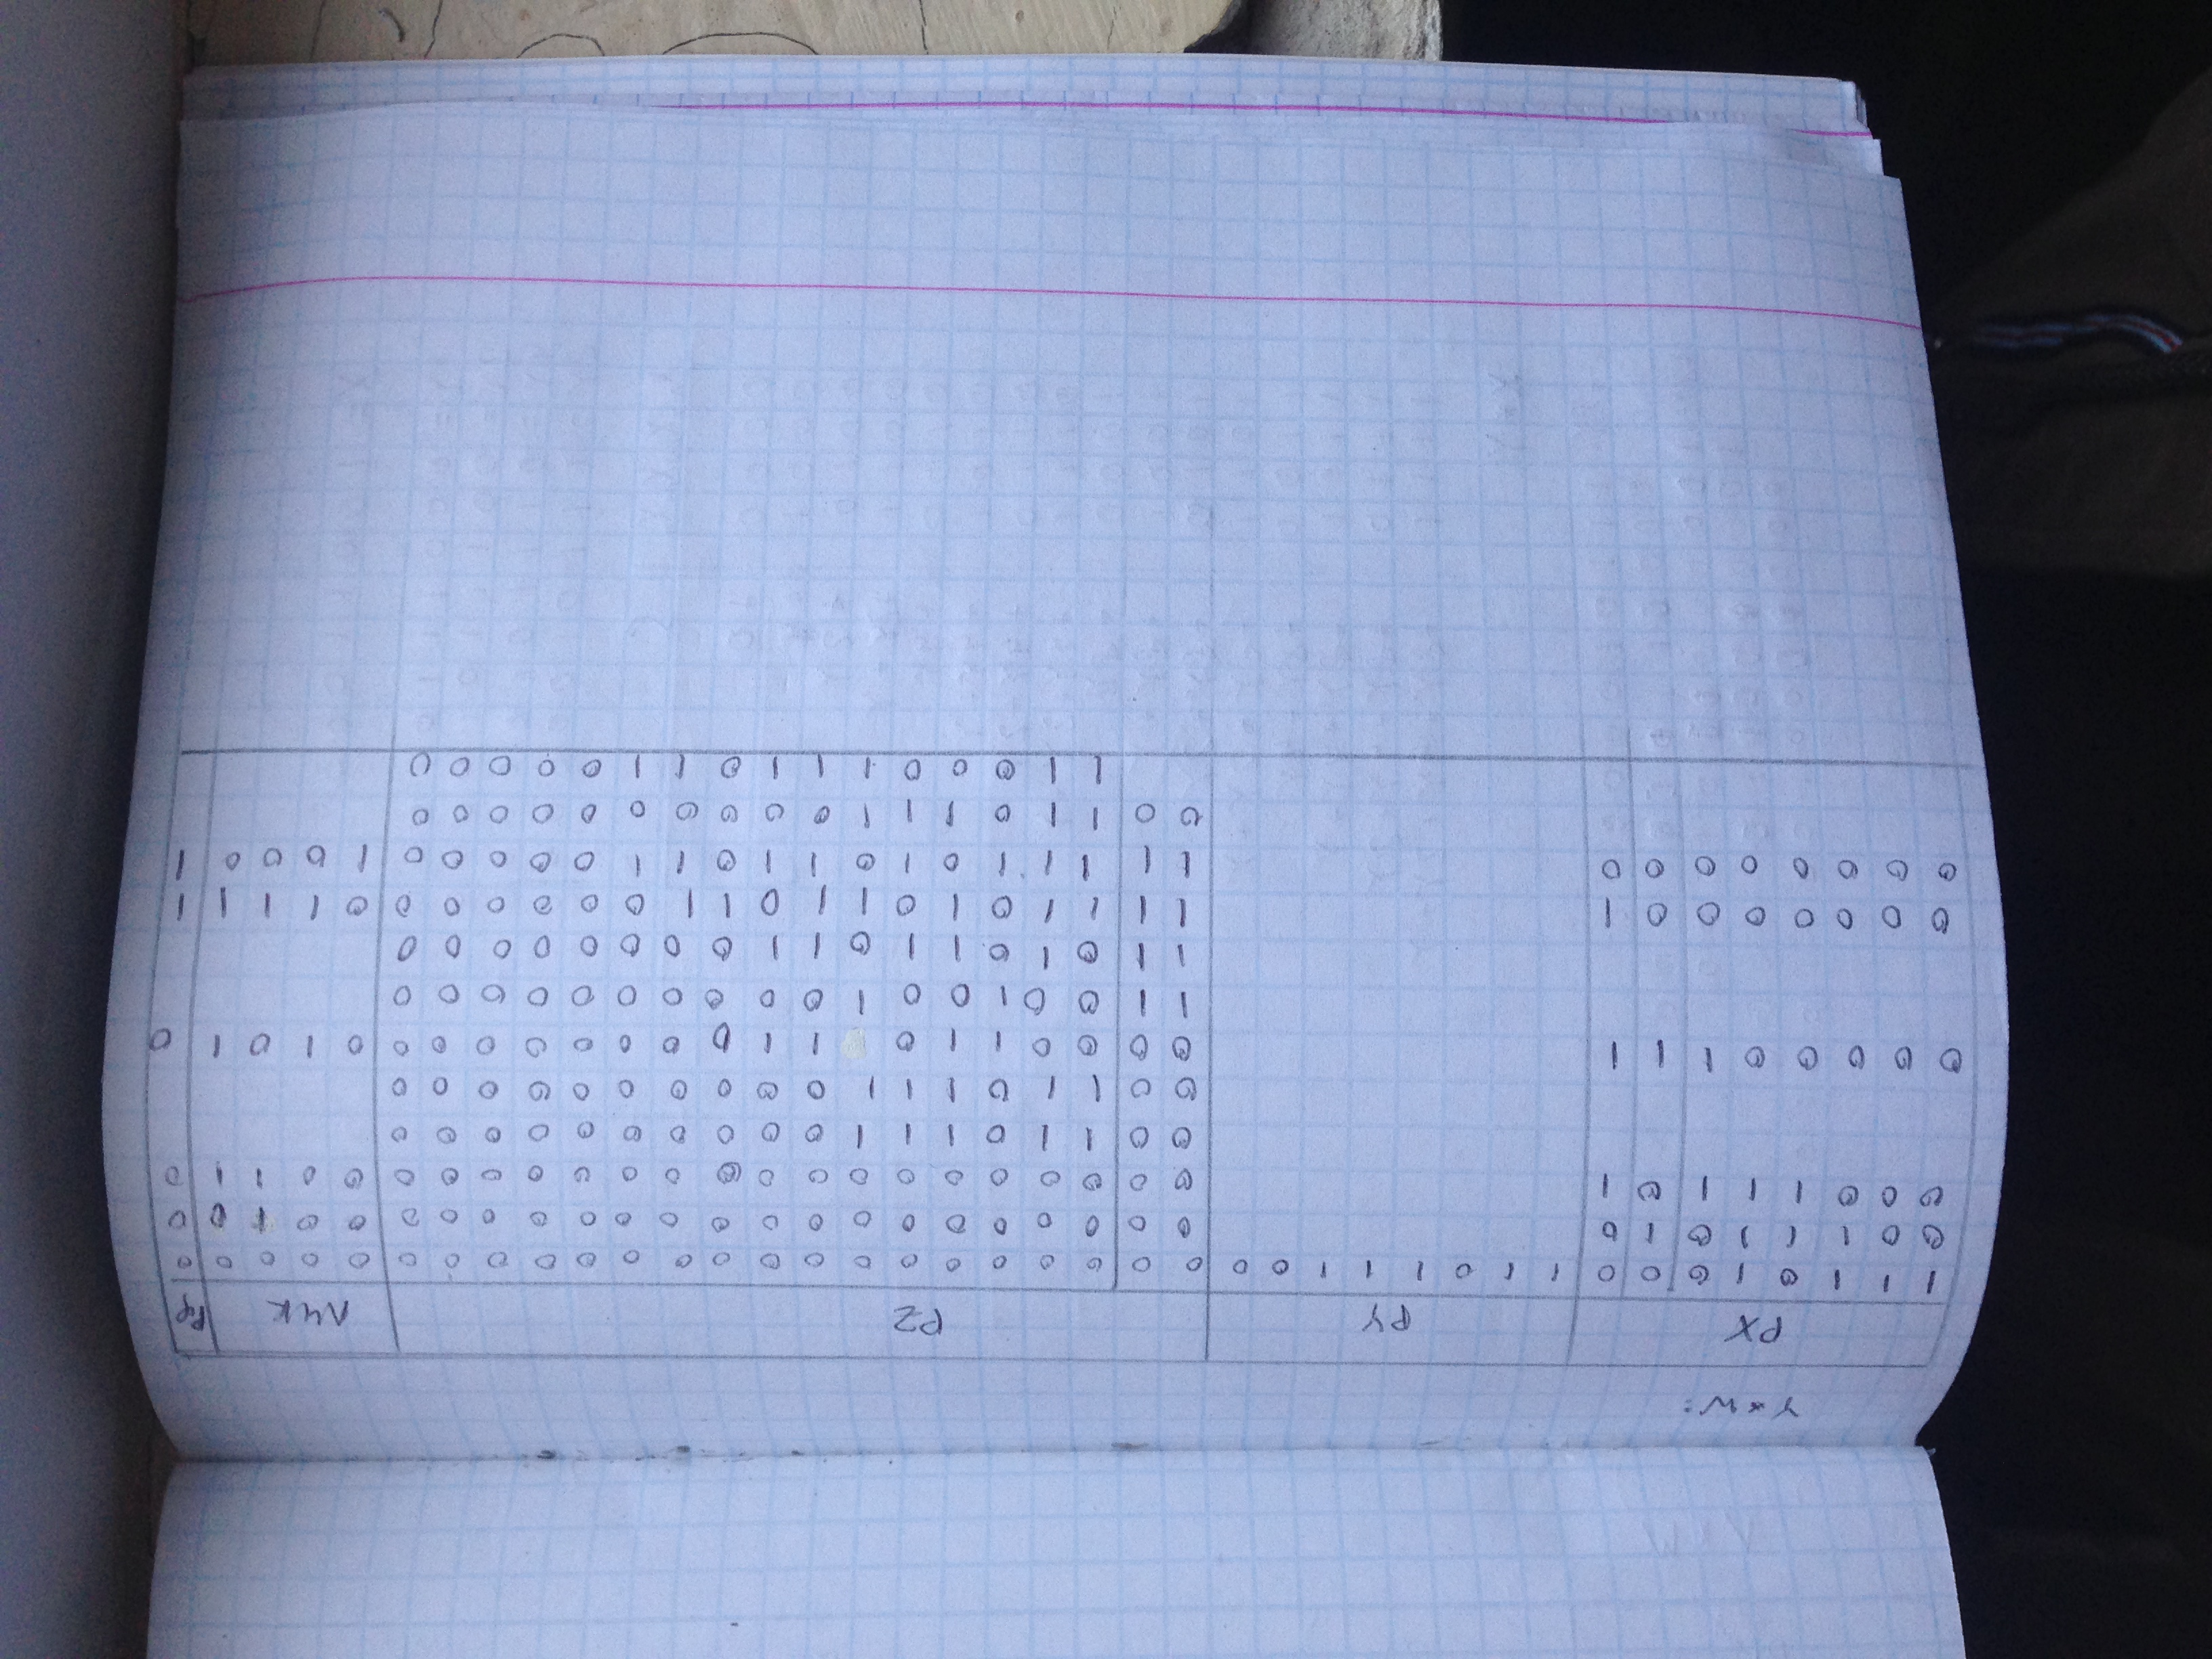 Y*W:
РХ РY PZ ЛЧК Рф
1 1 1 0 1 0 0 0 1 1 0 1 1 1 0 0 0 0 0 0 0 0 0 0 0 0 0 0 0 0 0 0 0 0 0 0 0 0 0
0 0 1 1 1 0 1 0 0 0 0 0 0 0 0 0 0 0 0 0 0 0 0 0 0 0 0 0 1 0 0
0 0 0 1 1 1 0 1 0 0 0 0 0 0 0 0 0 0 0 0 0 0 0 0 0 0 0 0 1 1 0
0 0 1 1 0 1 1 1 0 0 0 0 0 0 0 0 0 0
0 0 1 1 0 1 1 1 0 0 0 0 0 0 0 0 0 0
0 0 0 0 0 1 1 1 0 0 0 0 1 1 0 1 1 0 0 0 0 0 0 0 0 0 1 0 1 0
1 1 0 0 1 0 0 1 0 0 0 0 0 0 0 0 0 0
1 1 0 1 0 1 1 0 1 1 0 0 0 0 0 0 0 0
0 0 0 0 0 0 0 1 1 1 1 1 0 1 0 1 1 0 1 1 0 0 0 0 0 0 0 1 1 1 1
0 0 0 0 0 0 0 0 1 1 1 1 1 0 1 0 1 1 0 1 1 0 0 0 0 0 1 0 0 0 1
0 0 1 1 0 1 1 1 0 0 0 0 0 0 0 0 0 0
1 1 0 0 0 1 1 1 0 1 1 0 0 0 0 0